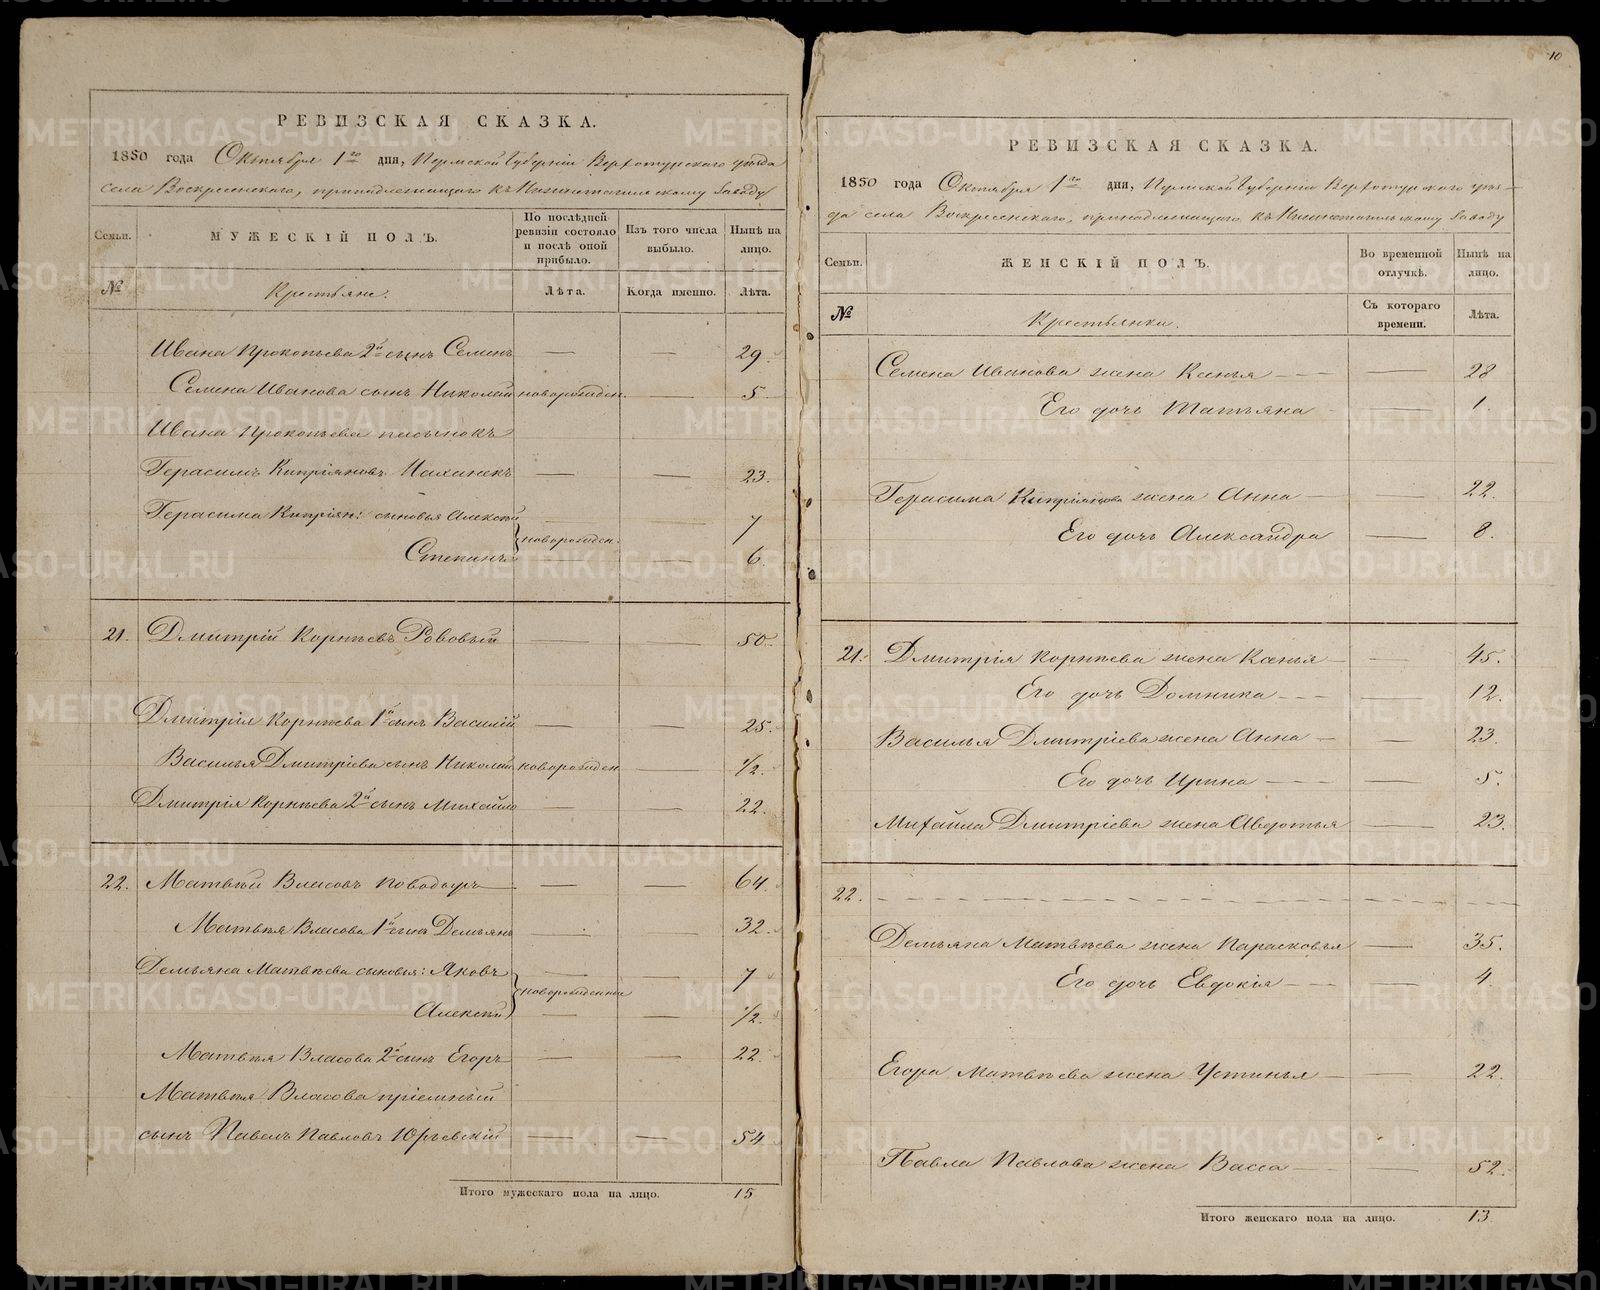 10
РЕВИЗСКАЯ СКАЗКА.
1850 года Октября 1го дня, Пермской Губерніи Верхотурскаго уѣзда
села Воскресенскаго, принадлежащаго къ Нижнетагильскому Заводу
Семьи.
МУЖЕСКІЙ ПОЛЪ.
По послѣдней ревизіи состояло и послѣ оной прибыло.
Изъ того числа выбыло.
Нынѣ на лицо.
№
Крестьяне.
Лѣта.
Когда именно.
Лѣта.
Ивана Прокопьева 2й сынъ Семенъ — — 29.
Семена Иванова сынъ Николай новорожден. — 5.
Ивана Прокопьева пасынокъ
Герасимъ Кипріяновъ — — 23.
Герасима Кипріян: сыновья Алексѣй — 7
новорожден.
Степанъ — — 6.
21. Дмитрій Корнѣевъ — — 50.
Дмитрія Корнѣева 1й сынъ Василій — — 25.
Василья Дмитріева сынъ Николай новорожден — 1/2.
Дмитрія Корнѣева 2й сынъ Михайло — — 22.
22. Матвѣй Власовъ — — 64.
Матвѣя Власова 1й сынъ Демьянъ — — 32.
Демьяна Матвѣева сыновья: Яковъ — — 7
новорожденны
Алексѣй — — 1/2.
Матвѣя Власова 2й сынъ Егоръ — — 22.
Матвѣя Власова пріемный
сынъ Павелъ Павловъ Юрьевскій — — 54
Итого мужескаго пола на лицо. 15
РЕВИЗСКАЯ СКАЗКА.
1850 года Октября 1го дня, Пермской Губерніи Верхотурскаго уѣз-
да села Воскресенскаго, принадлежащаго къ Нижнетагильскому Заводу
Семьи.
ЖЕНСКІЙ ПОЛЪ.
Во временной отлучкѣ.
Нынѣ на лицо.
№
Крестьянки.
Съ котораго времени.
Лѣта.
Семена Иванова жена Ксенья — — 28
Его дочь Татьяна — 1.
Герасима Кипріянова жена Анна — — 22.
Его дочь Александра — 8.
21. Дмитрія Корнѣева жена Ксенья — — 45.
Его дочь Домника — — 12.
Василья Дмитріева жена Анна — — 23.
Его дочь Ирина — — 5.
Михайла Дмитріева жена Авдотья — 23.
22.
Демьяна Матвѣева жена Парасковья — 35.
Его дочь Евдокія — — 4.
Егора Матвѣева жена Устинья — — 22.
Павла Павлова жена Васса — — 52.
Итого женскаго пола на лицо. 13
METRIKI.GASO-URAL.RU